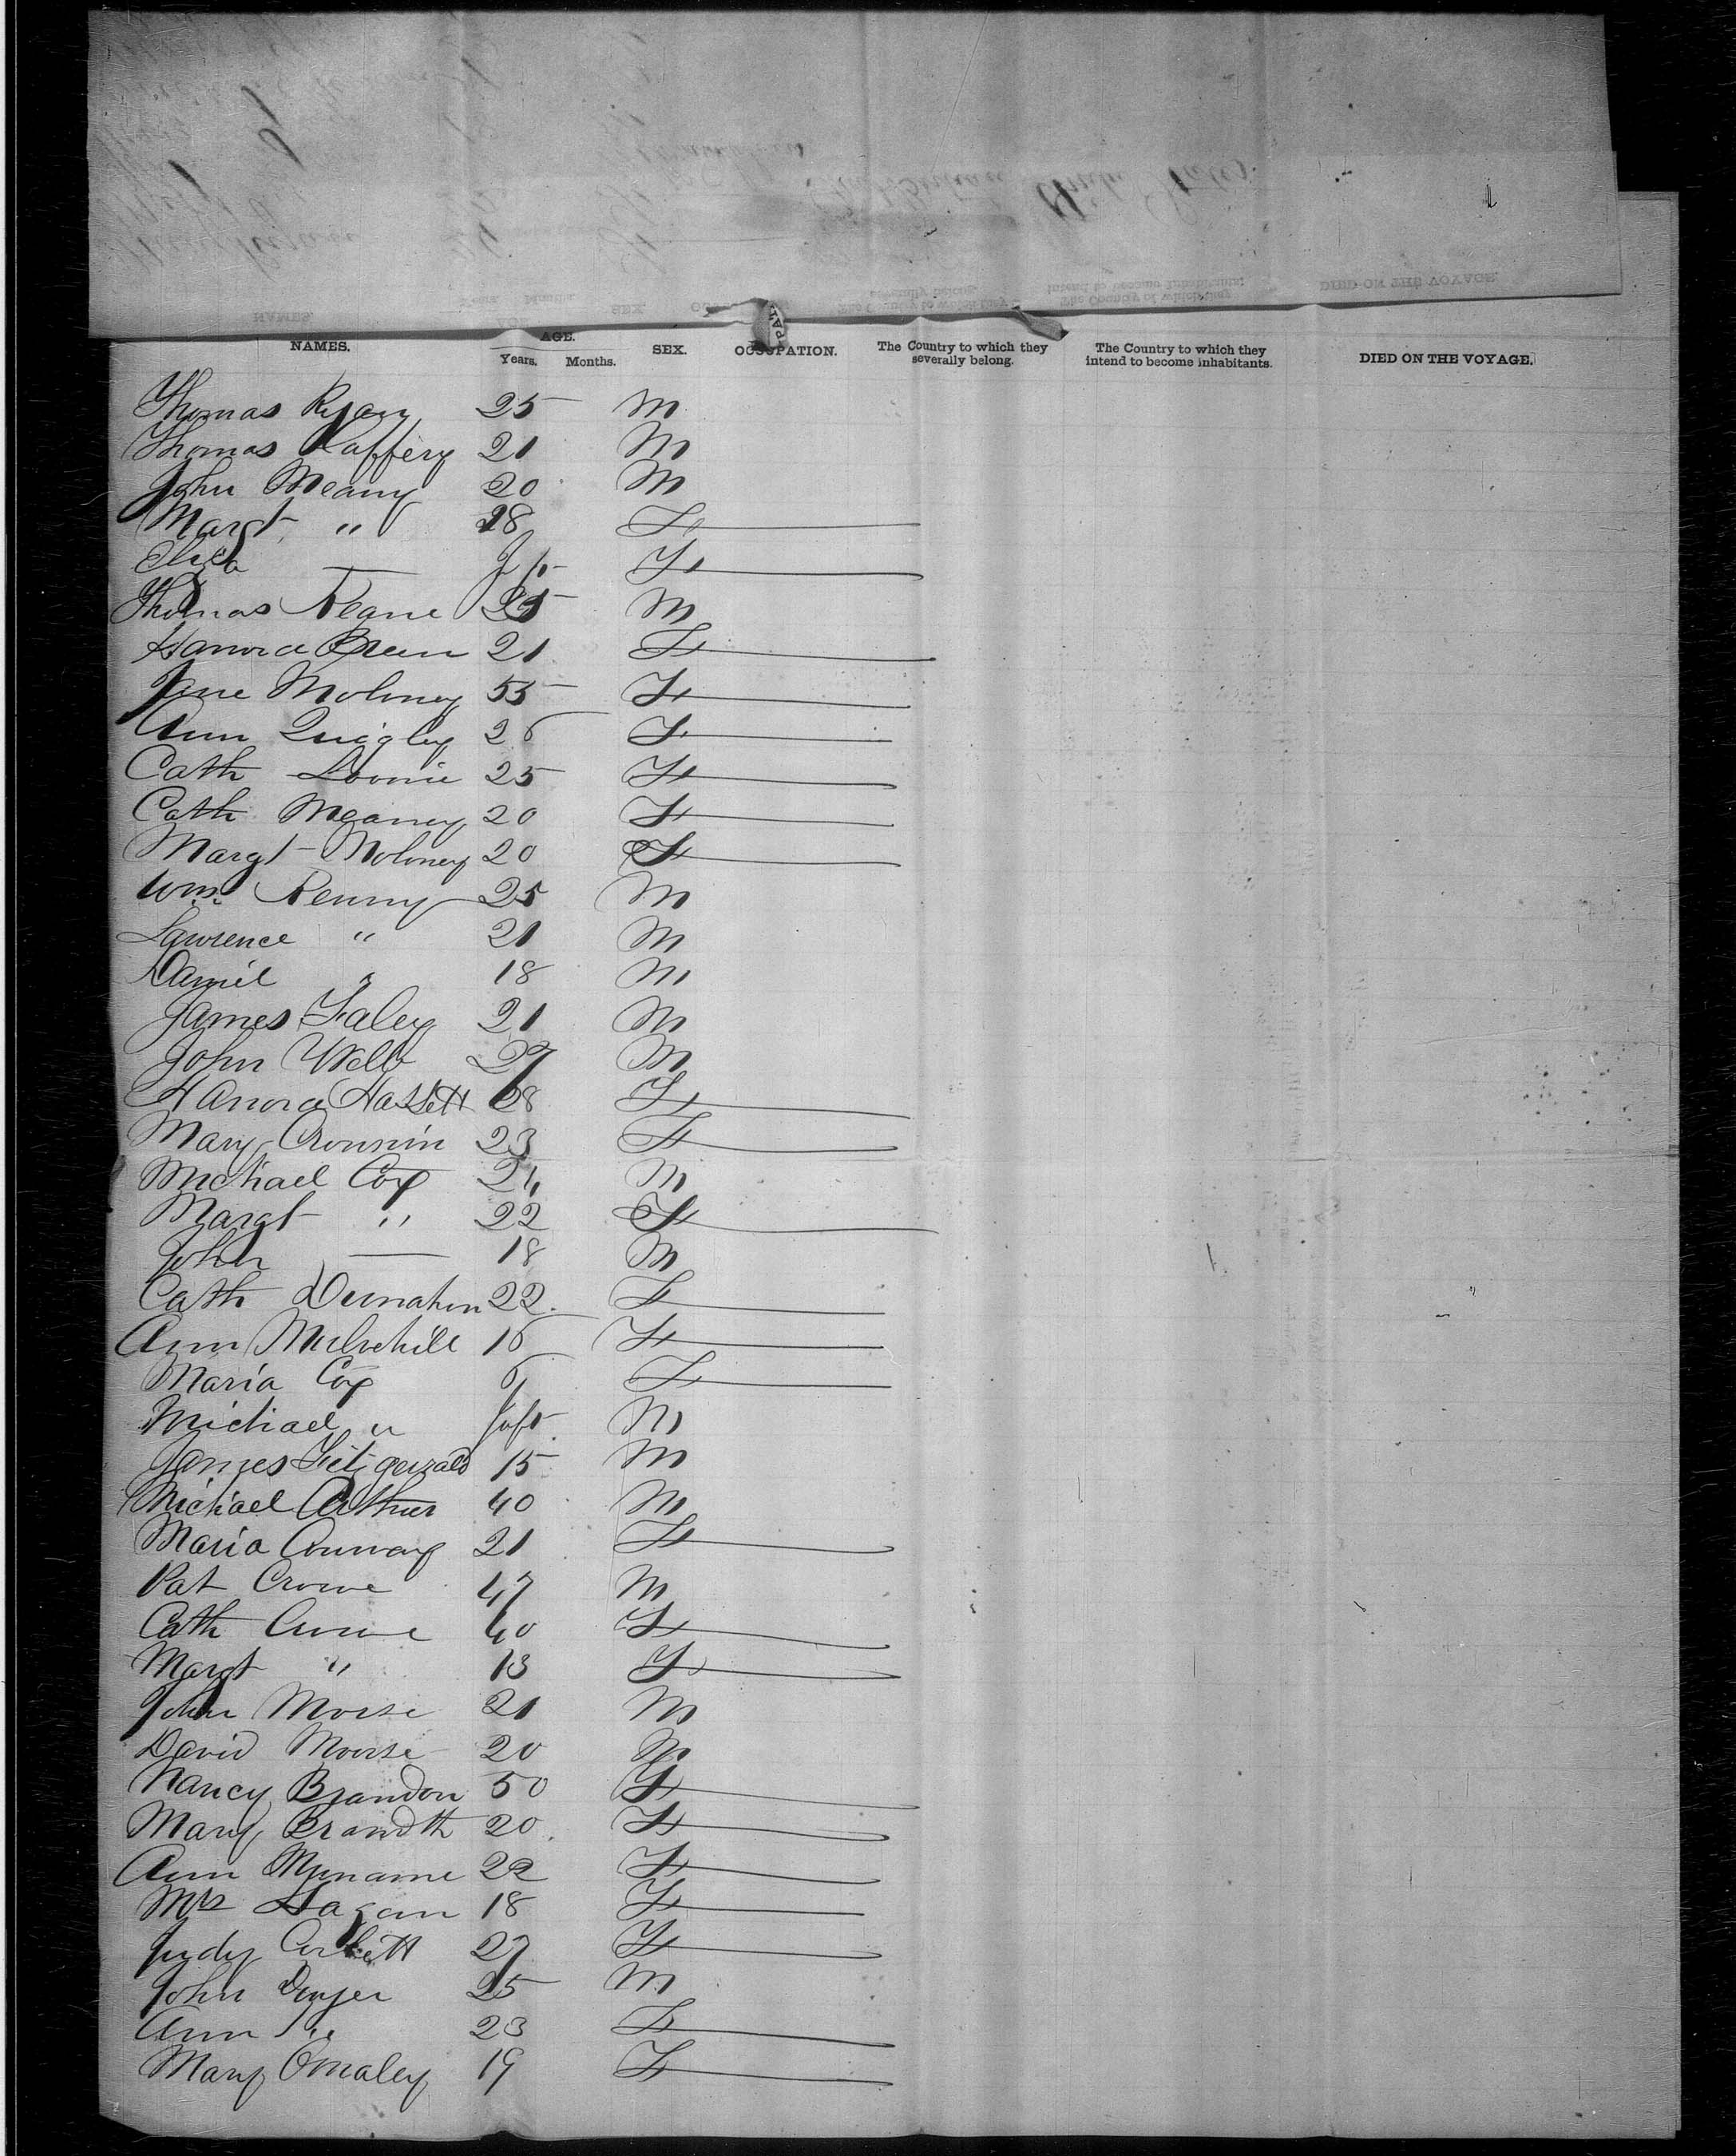 NAMES.
AGE.
Years. Months.
SEX.
OCCUPATION.
The Country to which they severally belong.
The Country to which they intend to become inhabitants.
DIED ON THE VOYAGE.
Thomas Ryan 25 M
Thomas Raffery 21 M
John Meany 20 M
Margt " 18 F
Eliza — F
Thomas Keane 25 M
Hanora Breen 21 F
Jane Moloney 55 F
Ann Quigley 26 F
Cath Loonie 25 F
Cath Meaney 20 F
Margt Moloney 20 F
Wm. Kenny 25 M
Lawrence " 21 M
Daniel " 18 M
James Faley 21 M
John Webb 27 M
Hanora Hassett 28 F
Mary Cronnin 23 F
Michael Cox 24 M
Margt " 22 F
John — 18 M
Cath Dunahon 22 F
Ann Mulvehill 16 F
Maria Cox 6 F
Michael " Inft M
James Fitzgerald 15 M
Michael Arthur 40 M
Maria Conway 21 F
Pat Crowe 47 M
Cath Crowe 40 F
Margt " 13 F
John Morse 21 M
David Moorse 20 M
Nancy Brandon 50 F
Mary Brandth 20 F
Ann 22 F
Mrs Hagan 18 F
Judy Corbett 27 F
John Dwyer 25 M
Ann " 23 F
Mary Omaley 19 F